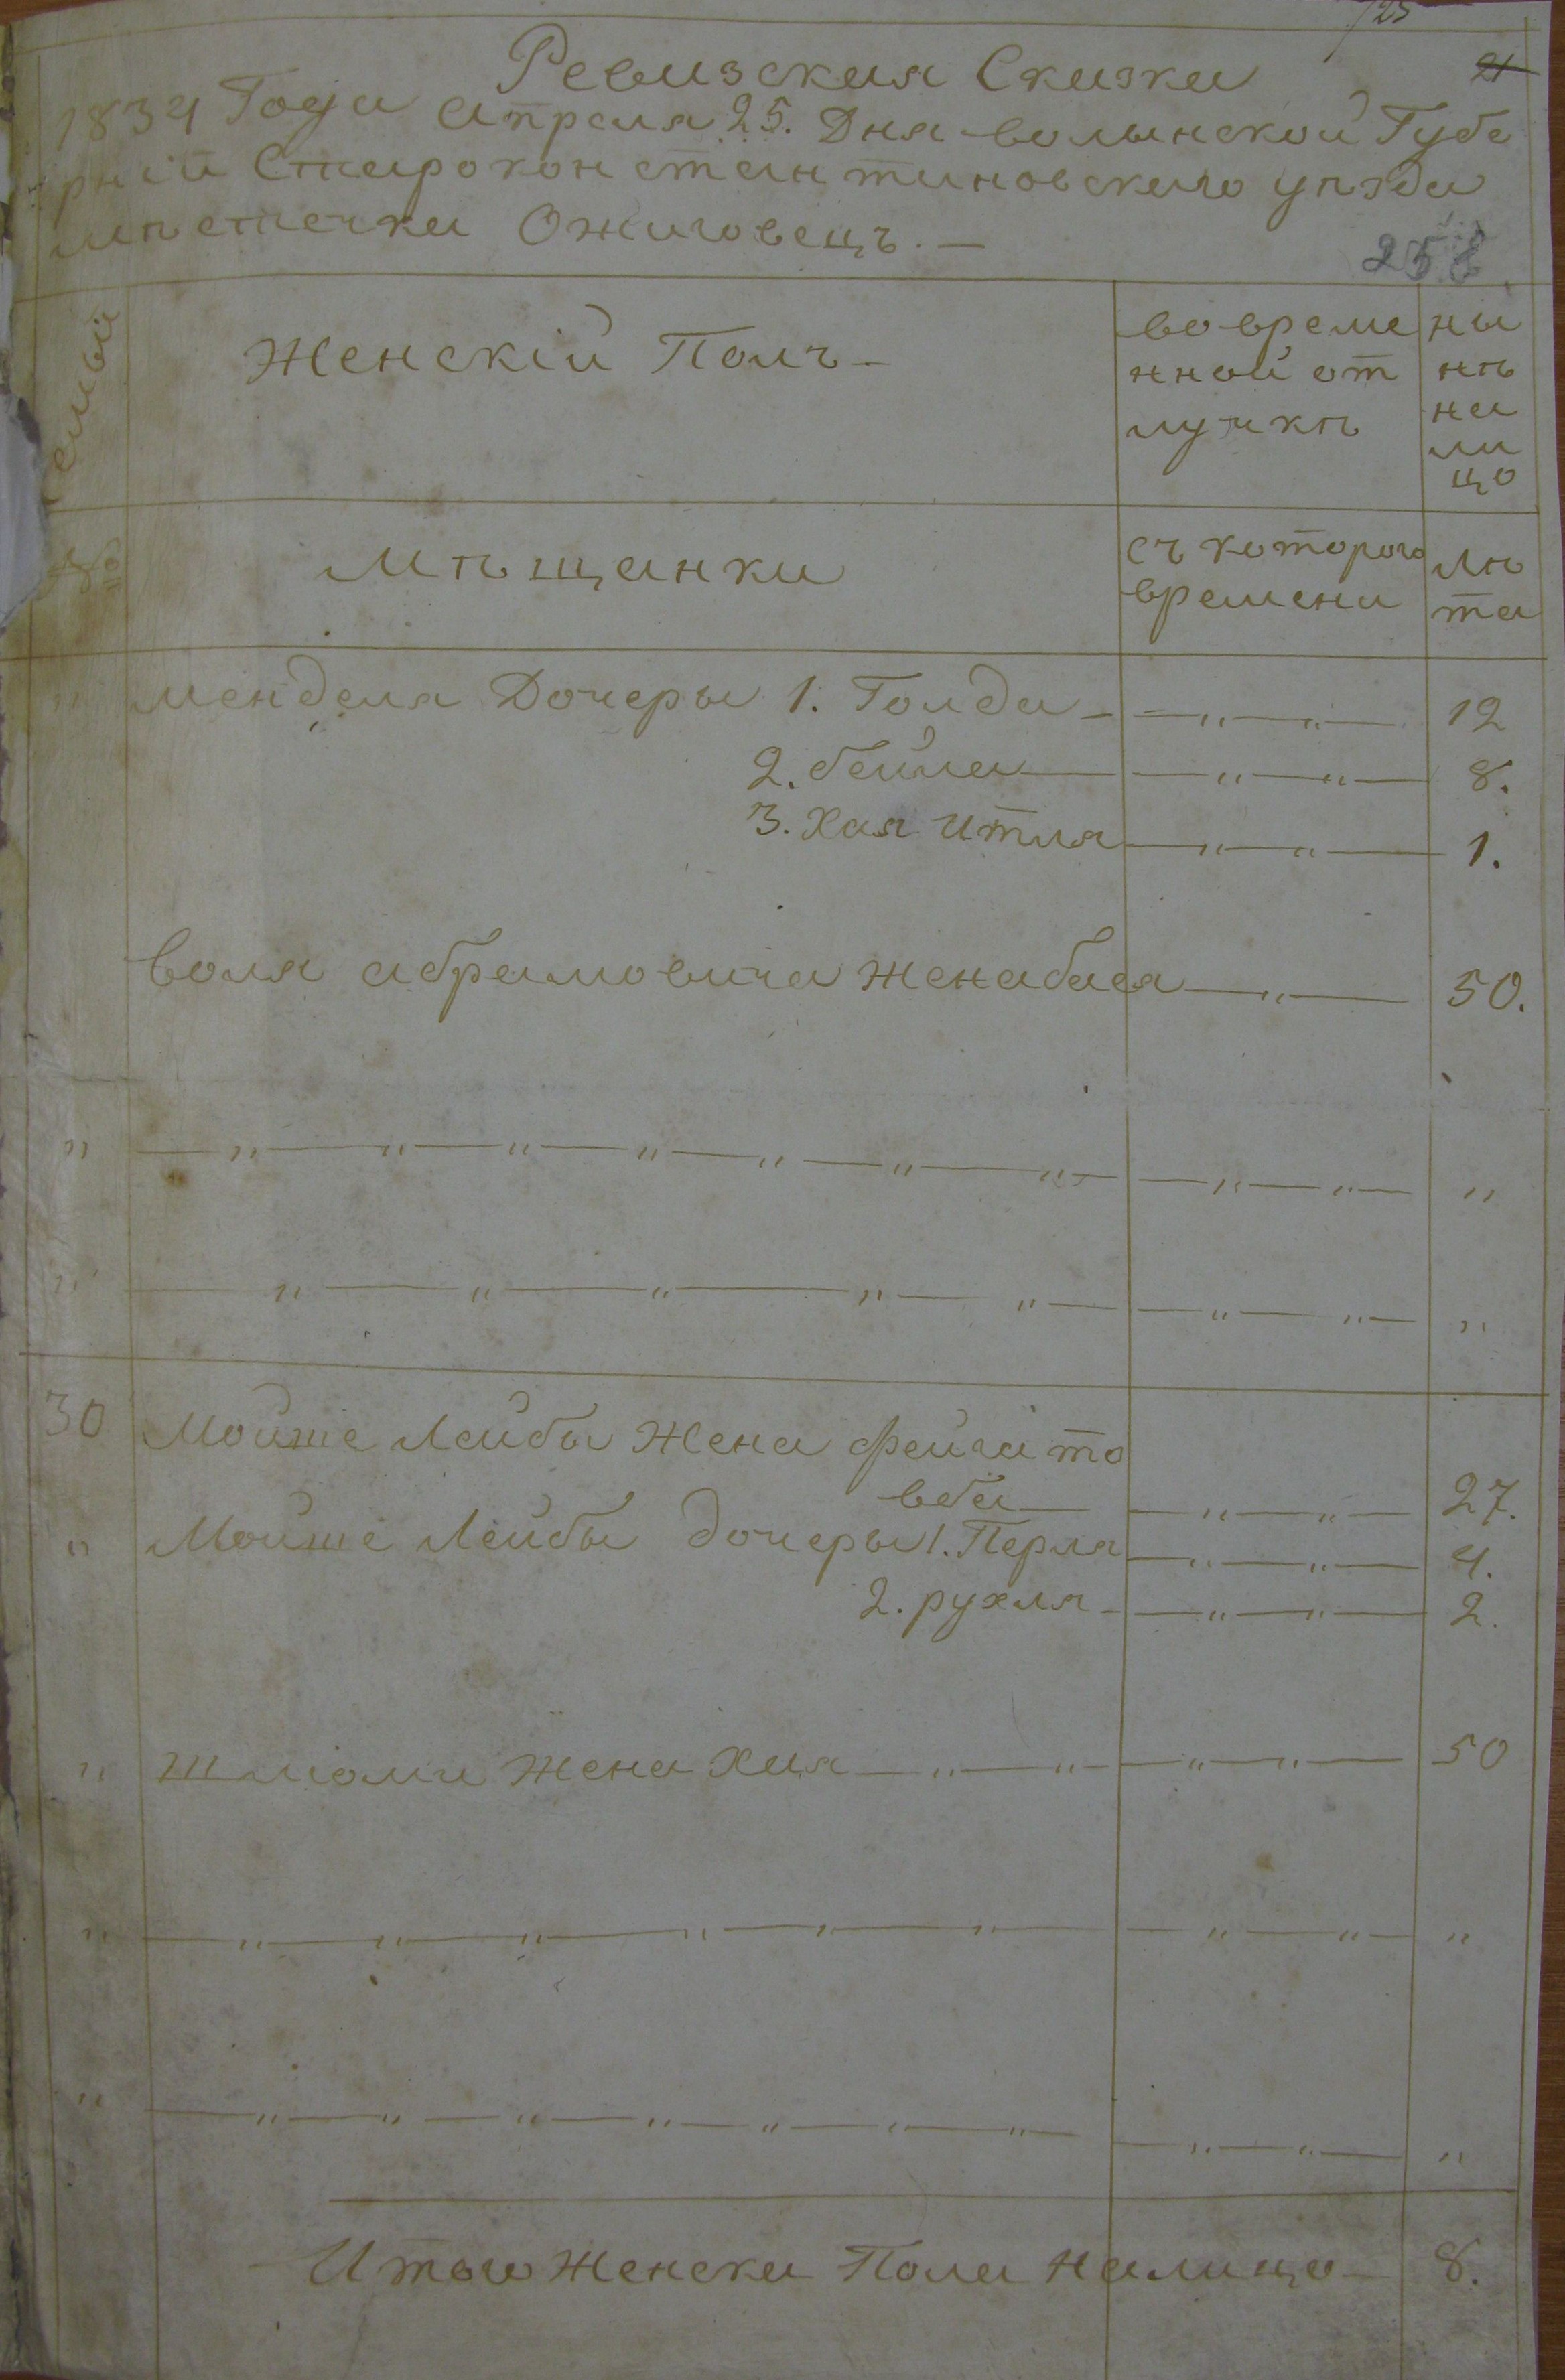 125
21
Ревизская Сказка
1834 Года Апреля 25. Дня волынской Губе
рніи Староконстантиновского уѣзда
мѣстечка Ожиговецъ. —
258
семьи
Женскій Полъ —
во време
нной от
лучкѣ
ны
нѣ
на
ли
цо
№
мѣщанки
съ которого
времени
лѣ
та
" менделя Дочеры 1. Голда — — " — " — 12
2. бейла — — " — " — 8.
3. Хая итля — " — " — 1.
воля абрамовича жена бася — " — 50.
" — " — " — " — " — " — " — " — — " — " — "
" — " — " — " — " — " — — " — " — "
30 Мойше Лейбы жена фейга то
вба — — " — " — 27.
" Мойше Лейбы дочеры 1. Перля — " — " — 4.
2. рухля — — " — " — 2.
" шліоми жена хая — " — " — — " — " — 50
" — " — " — " — " — " — " — — " — " — "
" — " — " — " — " — " — " — " — — " — " — "
Итого женска Пола налицо — 8.